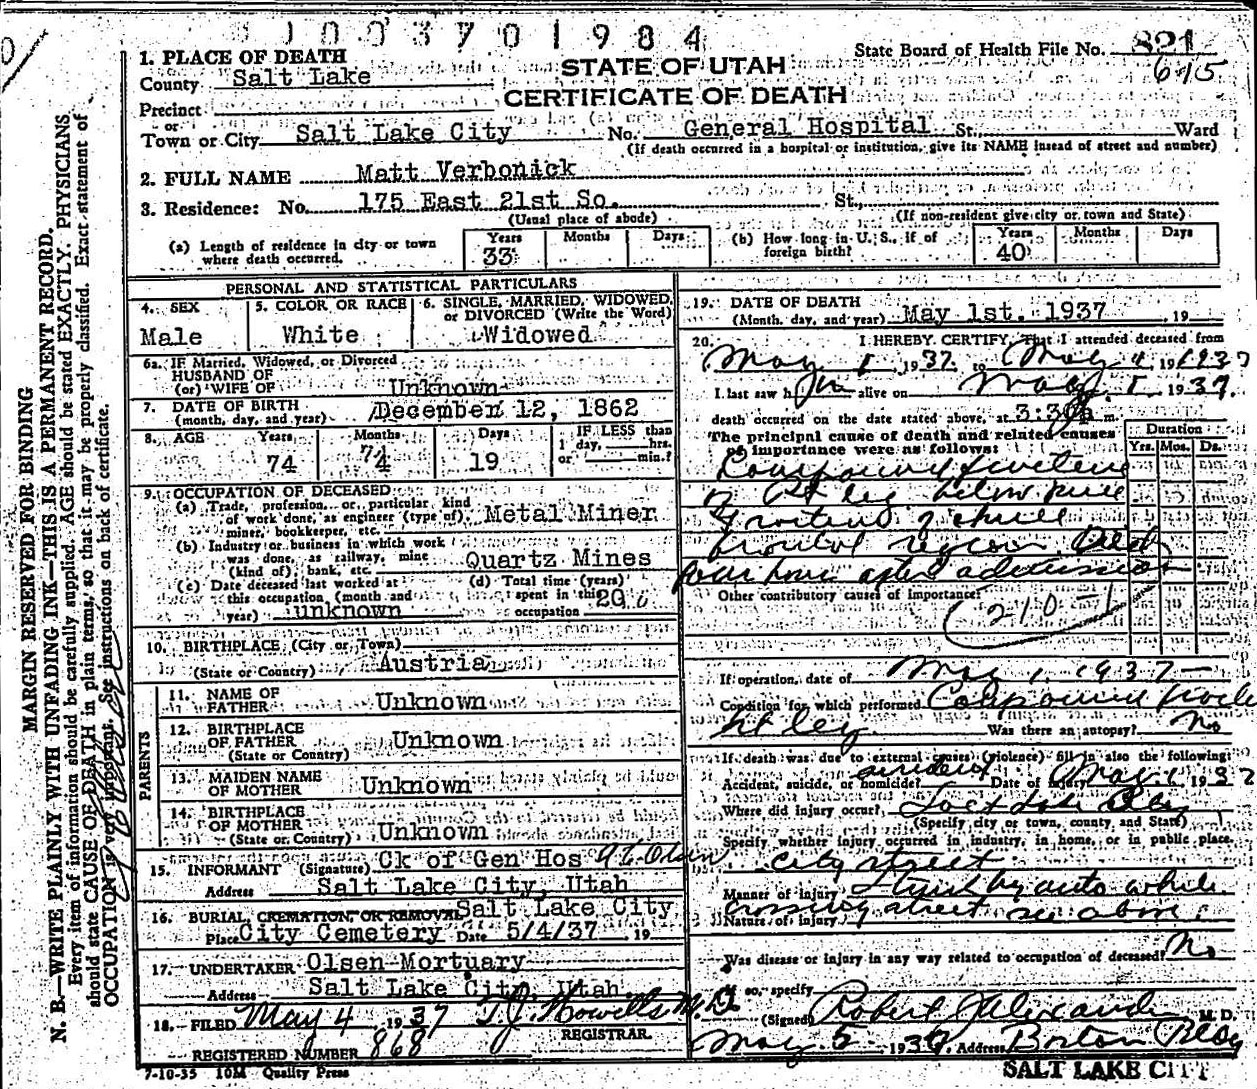 1003701984
State Board of Health File No. 821
615
STATE OF UTAH
CERTIFICATE OF DEATH
1. PLACE OF DEATH
County Salt Lake
Precinct
or
Town or City Salt Lake City No. General Hospital St. Ward
(If death occurred in a hospital or institution, give its NAME instead of street and number)
2. FULL NAME Matt Verbonick
3. Residence: No. 175 East 21st So. St.
(Usual place of abode) (If non-resident give city or town and State)
(a) Length of residence in city or town where death occurred. Years 33 Months Days
(b) How long in U. S., if of foreign birth? Years 40 Months Days
PERSONAL AND STATISTICAL PARTICULARS
4. SEX Male
5. COLOR OR RACE White
6. SINGLE, MARRIED, WIDOWED, or DIVORCED (Write the Word) Widowed
6a. IF Married, Widowed, or Divorced
HUSBAND OF
(or) WIFE OF Unknown
7. DATE OF BIRTH
(month, day, and year) December 12, 1862
8. AGE Years 74 Months 4 Days 19 IF LESS than 1 day, hrs. or min.?
9. OCCUPATION OF DECEASED
(a) Trade, profession, or, particular kind of work done, as engineer (type of) miner, bookkeeper, etc. Metal Miner
(b) Industry or business in which work was done, as railway, mine (kind of) bank, etc. Quartz Mines
(c) Date deceased last worked at this occupation, (month and year) unknown
(d) Total time (years) spent in this occupation 20
10. BIRTHPLACE (City or Town)
(State or Country) Austria
PARENTS
11. NAME OF FATHER Unknown
12. BIRTHPLACE OF FATHER (State or Country) Unknown
13. MAIDEN NAME OF MOTHER Unknown
14. BIRTHPLACE OF MOTHER (State or Country) Unknown
15. INFORMANT (Signature) Ck of Gen Hos
Address Salt Lake City, Utah
16. BURIAL, CREMATION, OR REMOVAL Salt Lake City
Place City Cemetery Date 5/4/37 19
17. UNDERTAKER Olsen Mortuary
Address Salt Lake City, Utah
18. FILED May 4, 1937 T.J. Howells M.D.
REGISTRAR.
REGISTERED NUMBER 868
7-10-35 10M Quality Press
19. DATE OF DEATH
(Month, day, and year) May 1st. 1937, 19
20. I HEREBY CERTIFY, That I attended deceased from
May 1 1937 to May 1 1937
I last saw him alive on May 1 1937.
death occurred on the date stated above, at 3:30 m.
The principal cause of death and related causes of importance were as follows:
Duration
Yrs. Mos. Ds.
Compound fracture
of Rt leg below knee
Fracture of skull
frontal region Died
four hours after admission
Other contributory causes of importance:
210-1
If operation, date of May 1, 1937
Condition for which performed Compound
rt leg Was there an autopsy? No
If death was due to external causes (violence) fill in also the following:
Accident, suicide, or homicide? accident Date of injury May 1 1937
Where did injury occur? Salt Lake City
(Specify city or town, county, and State)
Specify whether injury occurred in industry, in home, or in public place.
city street
Manner of injury Struck by auto while
crossing street
Nature of injury see above
Was disease or injury in any way related to occupation of deceased? No
If so, specify
(Signed) Robert J Alexander, M. D.
May 5 1937, Address Boston Bldg
SALT LAKE CITY
MARGIN RESERVED FOR BINDING
N. B.—WRITE PLAINLY WITH UNFADING INK—THIS IS A PERMANENT RECORD.
Every item of information should be carefully supplied. AGE should be stated EXACTLY. PHYSICIANS
should state CAUSE OF DEATH in plain terms, so that it may be properly classified. Exact statement of
OCCUPATION is very important. See instructions on back of certificate.